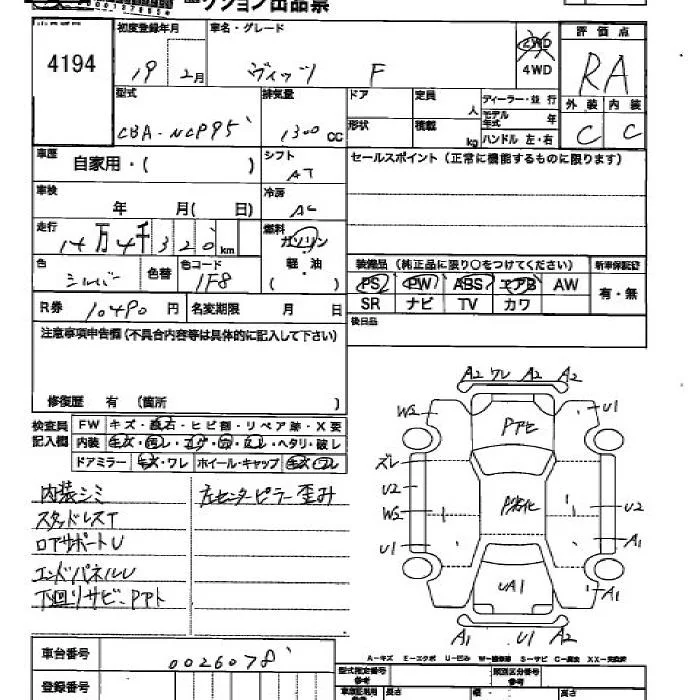 ークション出品票
4194
初度登録年月 車名・グレード 評価点
19 2月 ヴィッツ F 2WD 4WD RA
型式 排気量 ドア 定員 人 ディーラー・並行 外装 内装
CBA-NCP95 1300 CC 形状 積載 kg モデル年式 年 ハンドル 左・右 C C
車歴 自家用・( ) シフト AT セールスポイント(正常に機能するものに限ります)
車検 年 月( 日) 冷房 AC
走行 14万4千320km 燃料 ガソリン 軽・油 ( )
色 シルバー 色替 色コード 1F8 装備品(純正品に限り○をつけてください) 新車保証書
PS PW ABS エアB AW 有・無
R券 10490円 名変期限 月 日 SR ナビ TV カワ
注意事項申告欄(不具合内容等は具体的に記入して下さい) 後日品
修復歴 有 (箇所 )
検査員記入欄 FW キズ・飛石・ヒビ割・リペア跡・X要
内装 ・ヘタリ・破レ
ドアミラー キズ・ワレ ホイール・キャップ キズ・ワレ
A2 ワレ A2 A2
W2 Pアビ U1
ズレ
U2 P劣化 U2
W2
U1 A1
UA1 A1
A1 U1 A2
内装シミ 左センターピラー歪み
スタッドレスT
ロアサポートU
エンドパネルU
下回リサビ・Pアト
車台番号 0026078
A-キズ E-エクボ U-凹ミ S-サビ
登録番号 型式指定番号 参考 類別区分番号 参考
長さ 幅 高さ